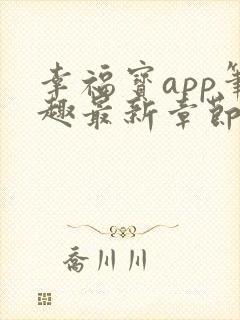 幸福宝app笔
趣最新章节
乔川川